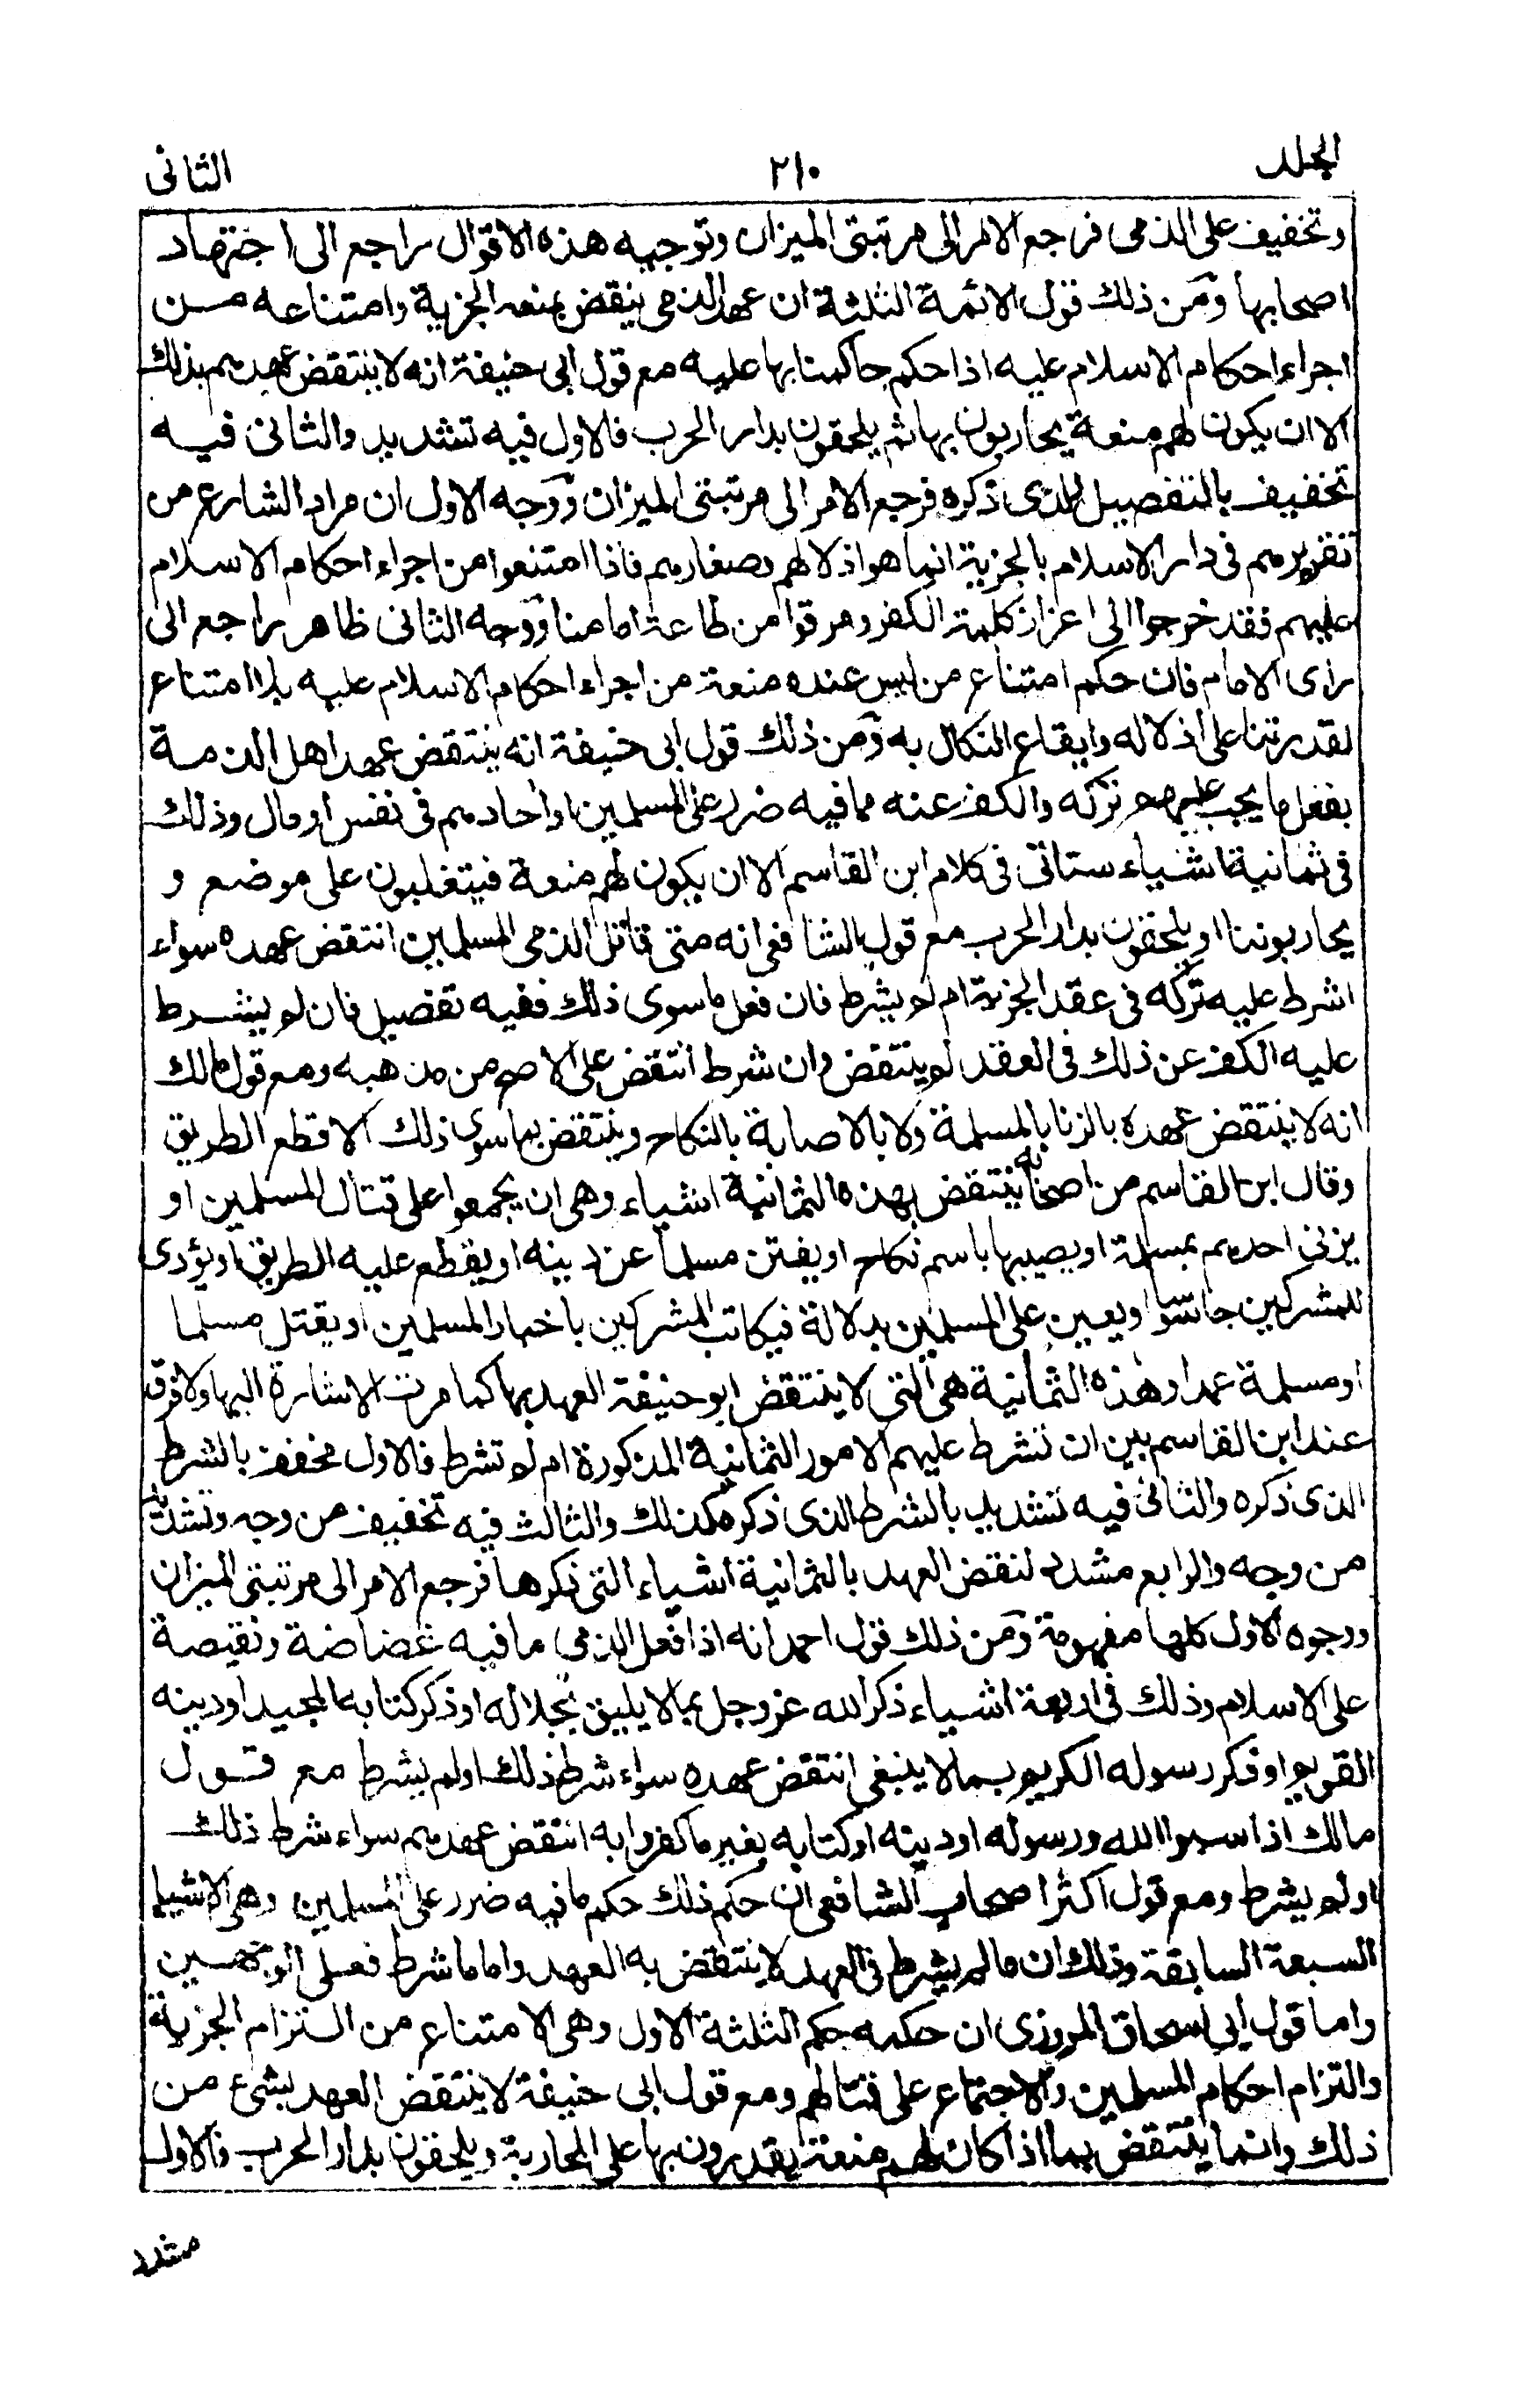 الجلد ٢١٠ الثانى
وتخفيف على الذمى فرجع الامر الى مرتبتى الميزان وتوجيه هذه الاقوال راجع الى اجتهاد
اصحابها ومن ذلك قول الائمة الثلثة ان عهد الذمى ينقض بمنعه الجزية وامتناعه من
اجراء احكام الاسلام عليه اذا حكم حاكمنا بها عليه مع قول ابى حنيفة انه لا ينتقض عهدهم بذلك
الا ان يكون لهم منعة يحاربون بها ثم يلحقون بدار الحرب فالاول فيه تشديد والثانى فيه
تخفيف بالتفصيل الذى ذكره فرجع الامر الى مرتبتى الميزان ووجه الاول ان مراد الشارع من
تقريرهم فى دار الاسلام بالجزية انما هو اذلالهم وصغارهم فاذا امتنعوا من اجراء احكام الاسلام
عليهم فقد خرجوا الى اعزاز كلمة الكفر ومرقوا من طاعة امامنا ووجه الثانى ظاهر راجع الى
راى الامام فان حكم امتناع من ليس عنده منعة من اجراء احكام الاسلام عليه بلا امتناع
لقدرتنا على اذلاله وايقاع النكال به ومن ذلك قول ابى حنيفة انه ينتقض عهد اهل الذمة
بفعل ما يجب عليهم تركه والكف عنه مما فيه ضرر على المسلمين او احادهم فى نفس او مال وذلك
فى ثمانية اشياء ستاتى فى كلام ابن القاسم الا ان يكون لهم منعة فيتغلبون على موضع و
يحاربوننا او يلحقون بدار الحرب مع قول الشافعى انه متى قاتل الذمى المسلمين انتقض عهده سواء
اشرط عليه تركه فى عقد الجزية ام لم يشرط فان فعل ما سوى ذلك ففيه تفصيل فان لم يشرط
عليه الكف عن ذلك فى العقد لم ينتقض وان شرط انتقض على الاصح من مذهبه ومع قول مالك
انه لا ينتقض عهده بالزنا بالمسلمة ولا بالاصابة بالنكاح وينتقض بما سوى ذلك الا قطع الطريق
وقال ابن القاسم من اصحابه ينتقض بهذه الثمانية اشياء وهى ان يجمعوا على قتال المسلمين او
يزنى احدهم بمسلمة او يصيبها باسم نكاح او يفتن مسلما عن دينه او يقطع عليه الطريق او يؤدى
للمشركين جاسوسا او يعين على المسلمين بدلالة فيكاتب المشركين باخبار المسلمين او يقتل مسلما
او مسلمة عمدا وهذه الثمانية هى التى لا ينتقض ابو حنيفة العهد بها كما مرت الاشارة اليها ولا فرق
عند ابن القاسم بين ان نشرط عليهم الامور الثمانية المذكورة ام لم تشرط فالاول مخفف بالشرط
الذى ذكره والثانى فيه تشديد بالشرط الذى ذكره كذلك والثالث فيه تخفيف من وجه وتشديد
من وجه والرابع مشدد لنقض العهد بالثمانية اشياء التى ذكرها فرجع الامر الى مرتبتى الميزان
ووجوه الاول كلها مفهومة ومن ذلك قول احمد انه اذا فعل الذمى ما فيه غضاضة ونقيصة
على الاسلام وذلك فى اربعة اشياء ذكر الله عز وجل بما لا يليق بجلاله او ذكر كتابه المجيد او دينه
القويم او ذكر رسوله الكريم بما لا ينبغى انتقض عهده سواء شرط ذلك او لم يشرط مع قول
مالك اذا سبوا الله ورسوله او دينه او كتابه بغير ما كفروا به انتقض عهدهم سواء شرط ذلك
او لم يشرط ومع قول اكثر اصحاب الشافعى ان حكم ذلك حكم ما فيه ضرر على المسلمين وهى الاشياء
السبعة السابقة وذلك ان ما لم يشرط فى العهد لا ينتقض به العهد واما ما شرط فعلى الوجهين
واما قول ابى اسحاق المروزى ان حكمه حكم الثلثة الاول وهى الامتناع من التزام الجزية
والتزام احكام المسلمين والاجتماع على قتالهم ومع قول ابى حنيفة لا ينتقض العهد بشىء من
ذلك وانما ينتقض بما اذا كان لهم منعة يقدرون بها على المحاربة ويلحقون بدار الحرب فالاول
مشدد